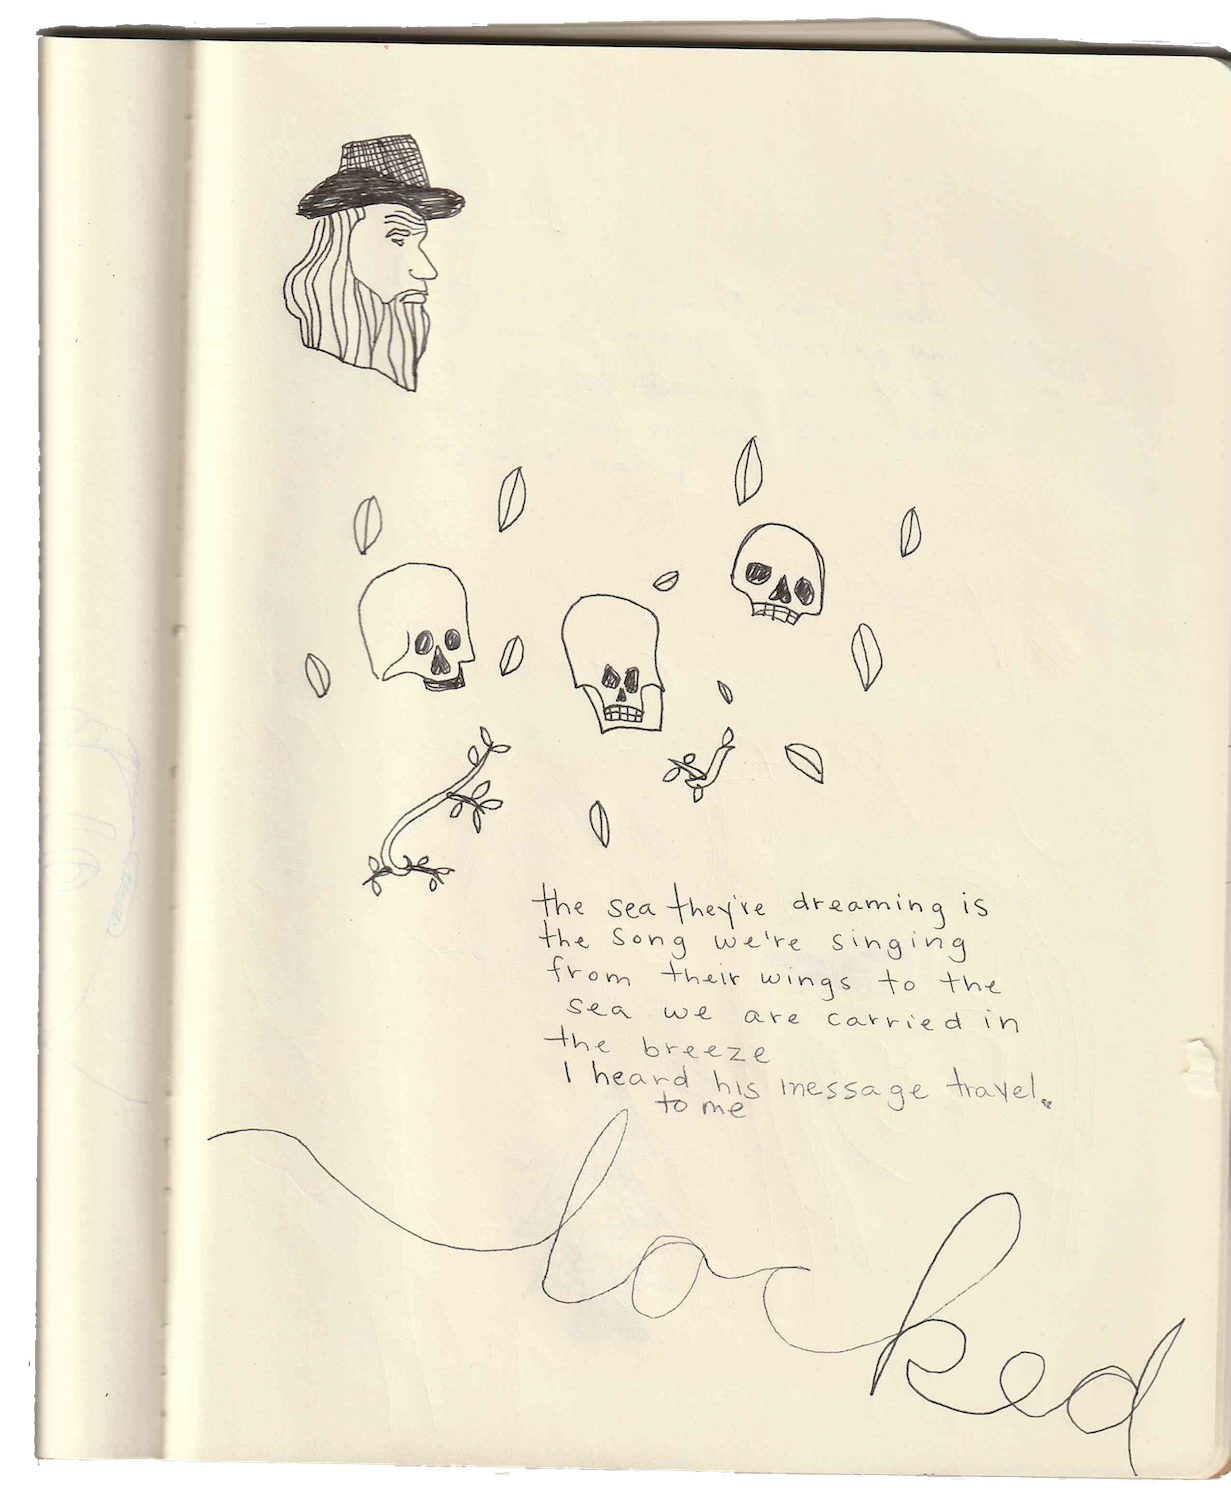 the sea they're dreaming is
the song we're singing
from their wings to the
sea we are carried in
the breeze
I heard his message travel.
to me
locked